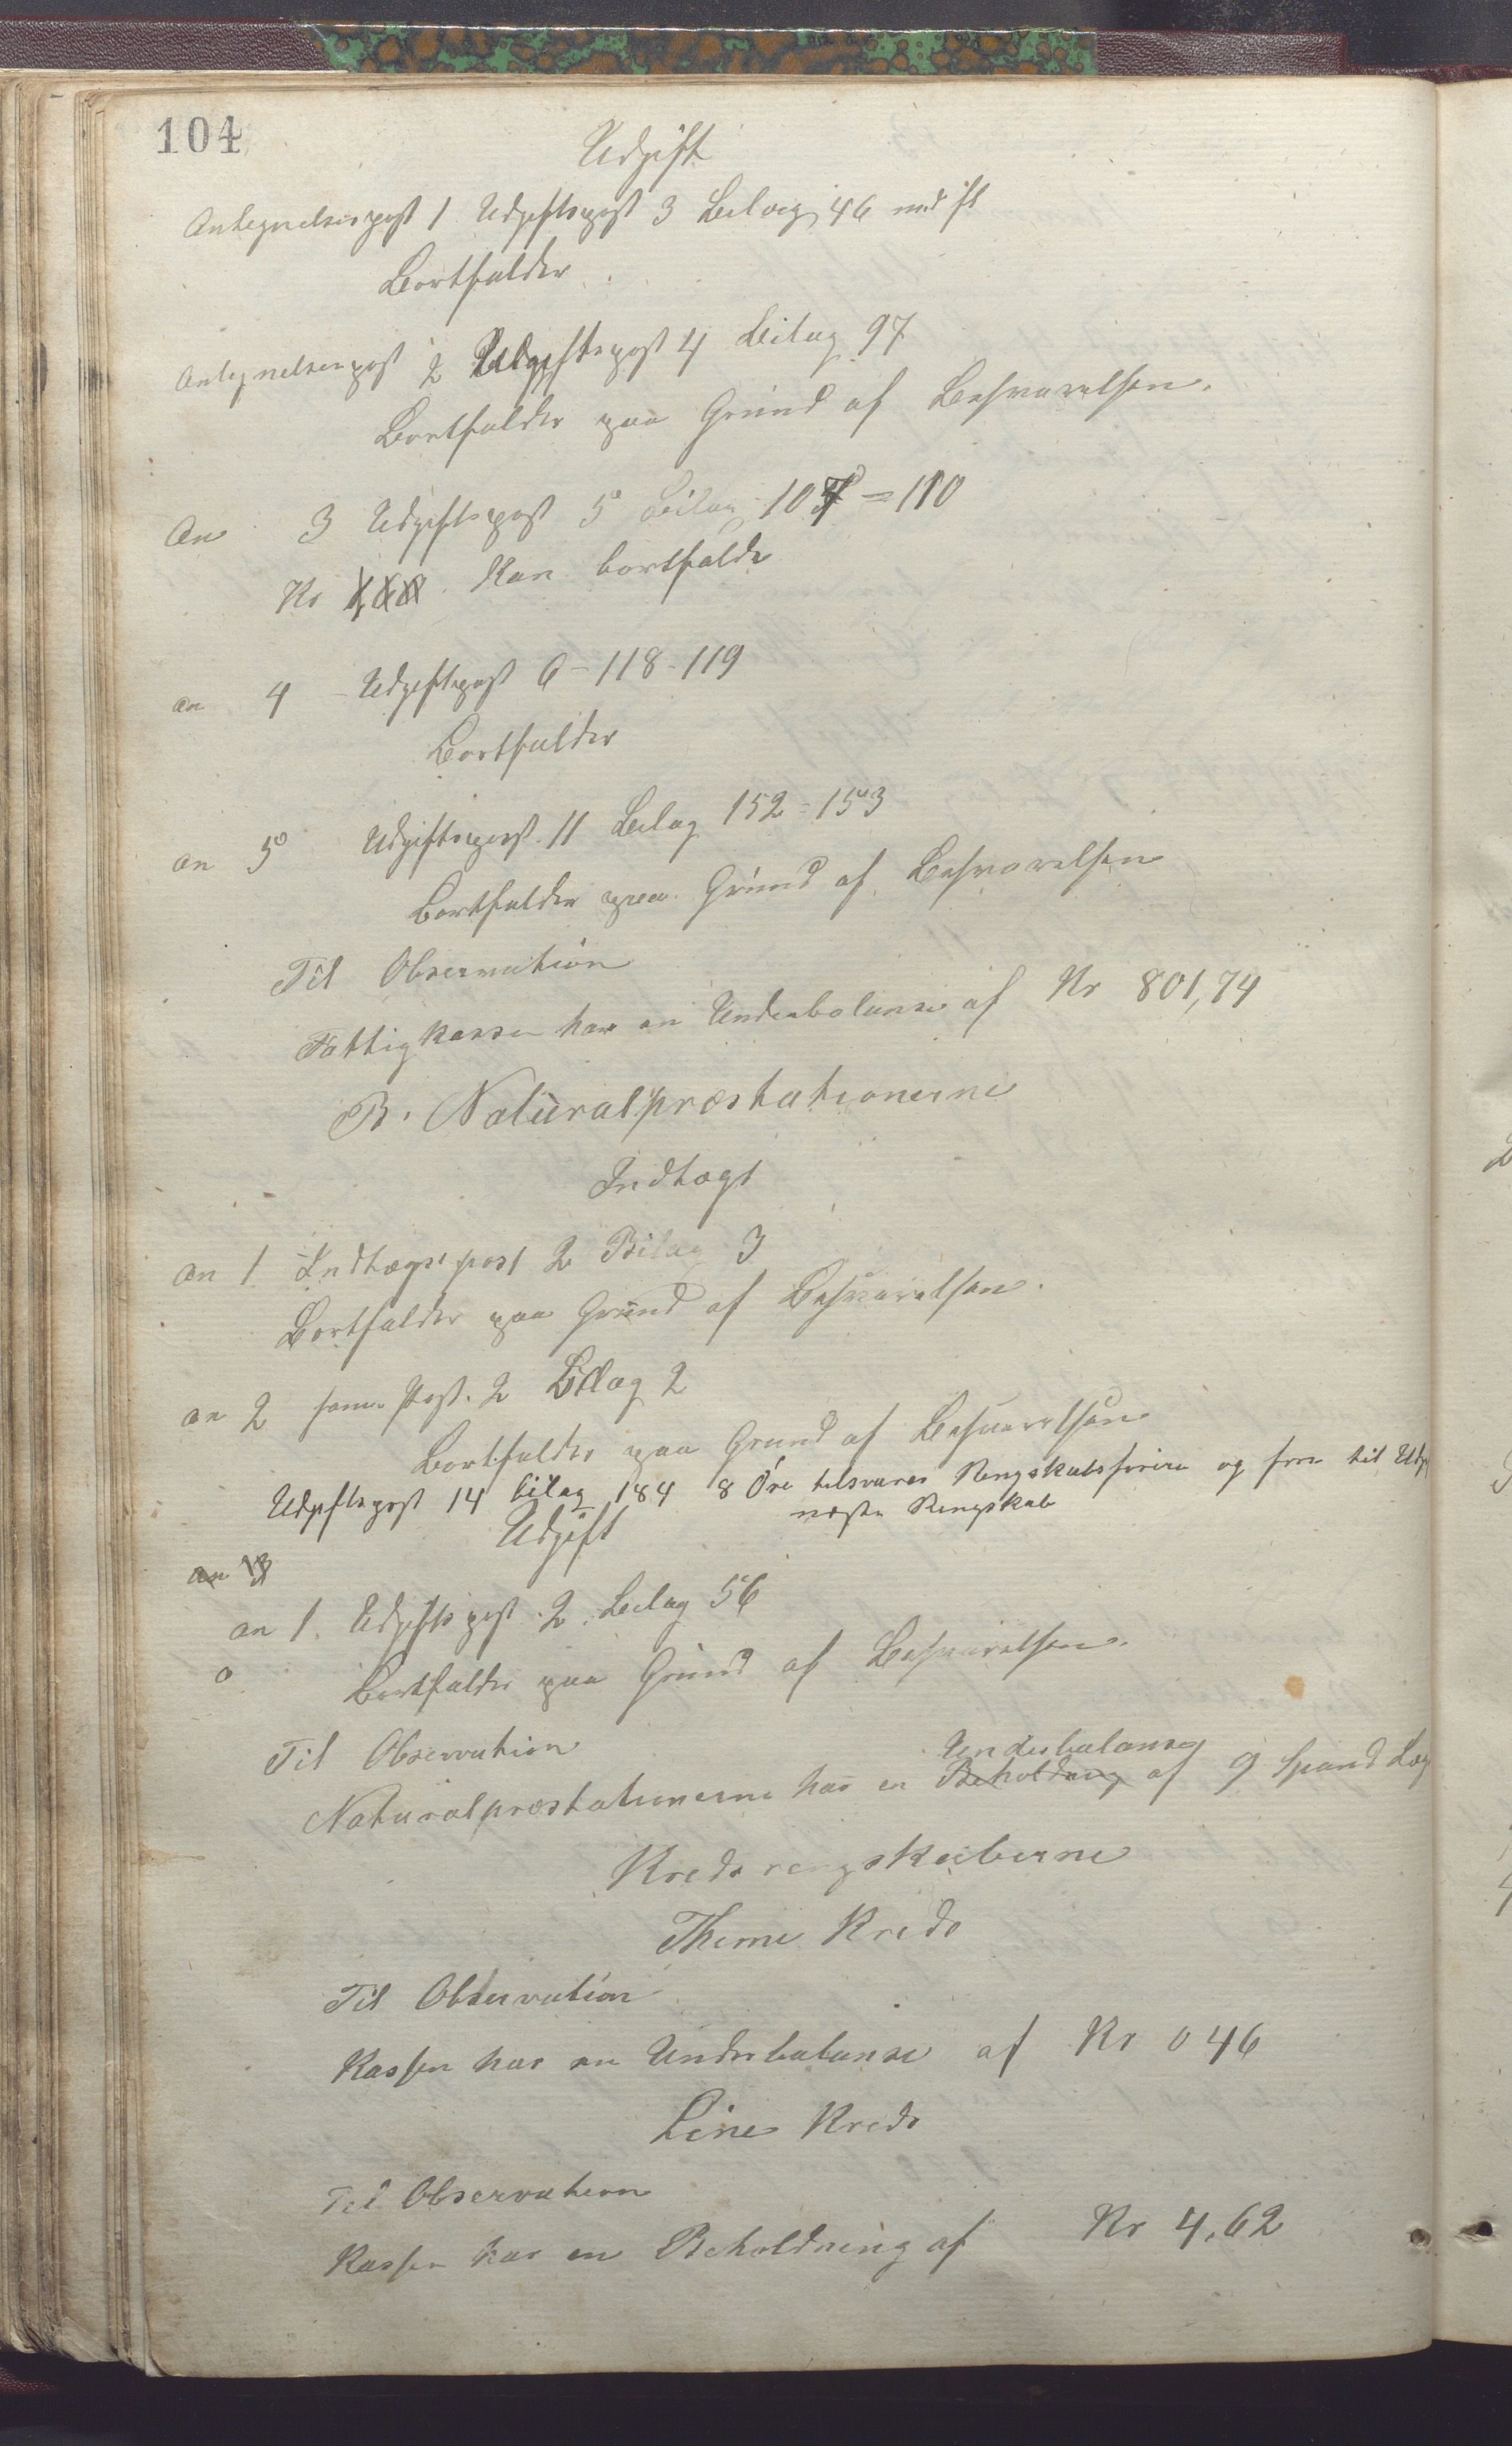 104
Udgift
Antegnelsespost 1 Udgiftspost 3 Bilag 46
Bortfalder
Antegnelsespost 2 Udgiftspost 4 Bilag 97
Bortfalder paa Grund af Besvarelsen.
An 3 Udgiftspost 5 Bilag 107 = 110
Kr kan bortfalde
an 4 - Udgiftspost 6 - 118 - 119
Bortfalder
an 5 Udgiftspost. 11 Bilag 152 = 153
Bortfalder paa Grund af Besvarelsen
Til Observation
Fattigkassen har en Underbalanse af Kr 801,74
B. Naturalpræstationerne
Indtægt
an 1 Indtægtspost 2 Bilag 3
Bortfalder paa Grund af Besvarelsen.
an 2 samme Post. 2 Bilag 2
Bortfalder paa Grund af Besvarelsen
Udgiftspost 14 bilag 184 8 Øre tilsvares Regnskabsføreren og føres til
næste Regnskab
Udgift
an 1. Udgiftspost. 2. Bilag 56
Bortfalder paa Grund af Besvarelsen.
Til Observation
Underbalanse
Naturalpræstationerne har en Beholdning af 9 Spand
Kredsregnskaberne
Thime Kreds
Til Observation
Kassen har en Underbalanse af Kr 0 46
Line Kreds
Til Observation
Kassen har en Beholdning af Kr 4,62